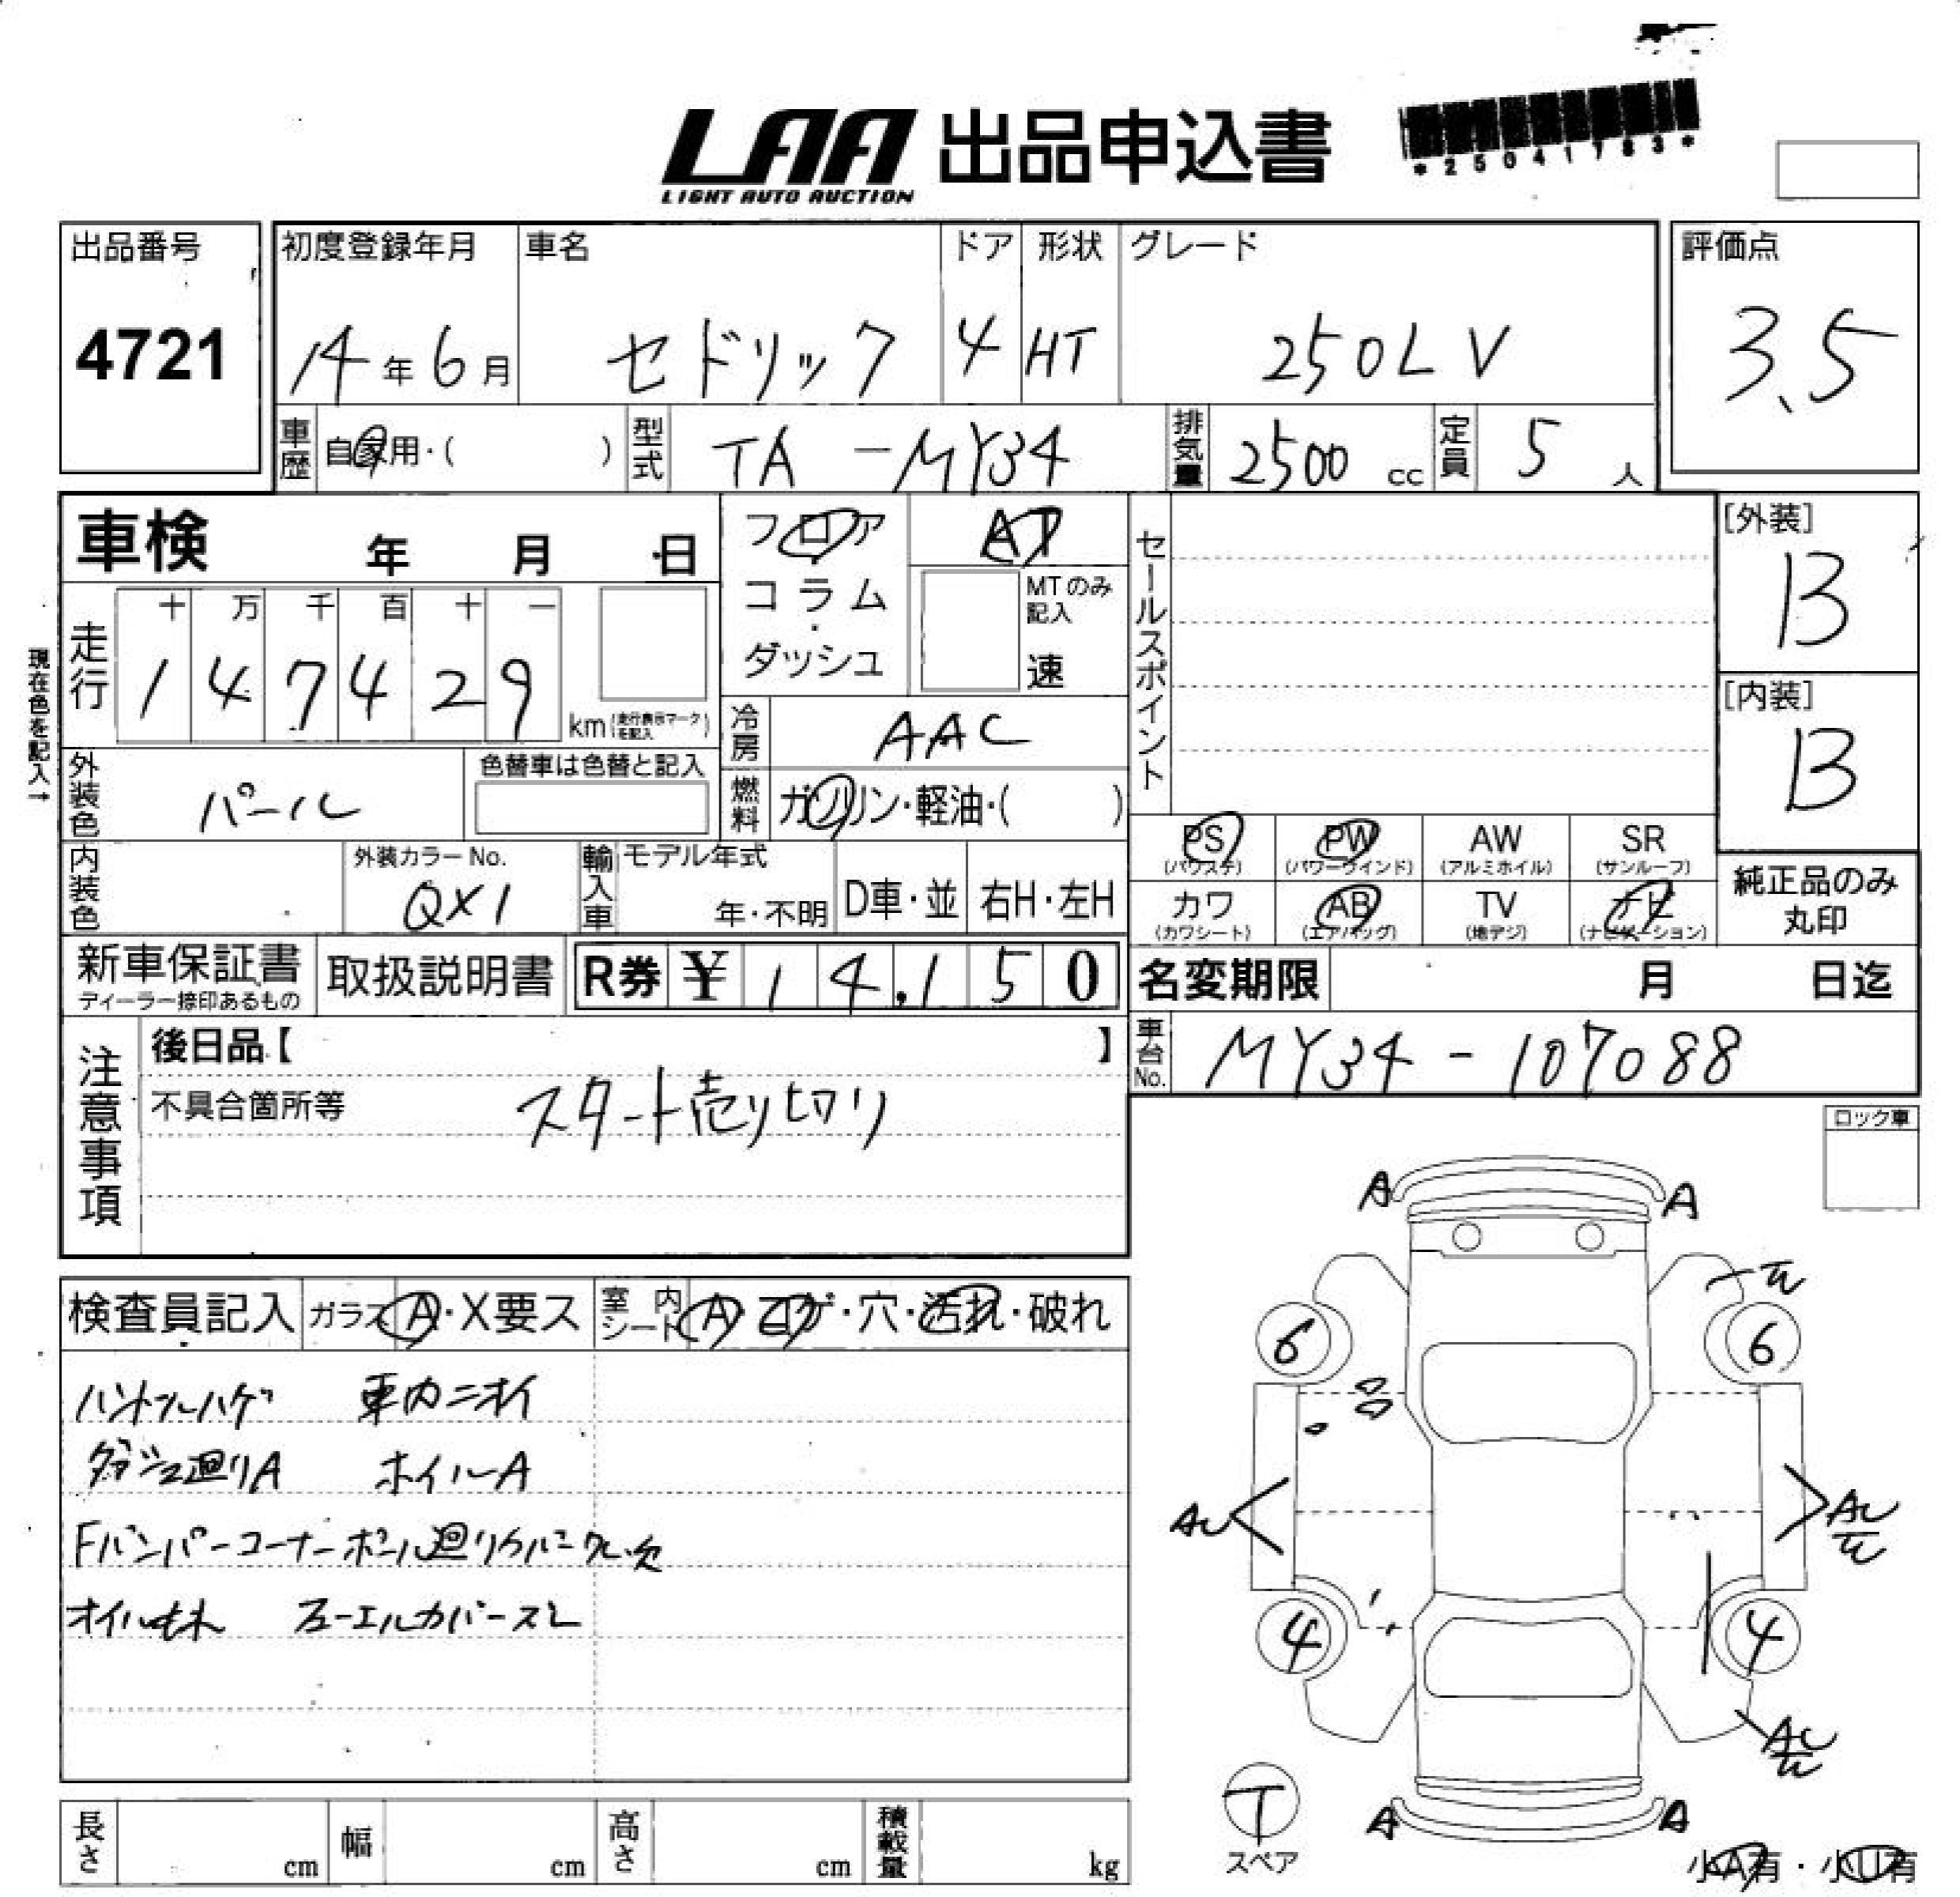 LAA 出品申込書
LIGHT AUTO AUCTION
*25041783*
出品番号
4721
初度登録年月
14年6月
車名
セドリック
ドア
4
形状
HT
グレード
250LV
評価点
3.5
車歴 自家用・( )
型式 TA-MY34
排気量 2500 cc
定員 5 人
車検 年 月 日
フロア
コラム
ダッシュ
AT
MTのみ記入
速
セールスポイント
[外装]
B
[内装]
B
現在色を記入→
走行
十 万 千 百 十 一
1 4 7 4 2 9
km (走行表示マークを記入)
冷房 AAC
外装色 パール
色替車は色替と記入
燃料 ガソリン・軽油・( )
内装色
外装カラーNo.
QX1
輸入車 モデル年式
年・不明
D車・並
右H・左H
PS (パワステ)
PW (パワーウインド)
AW (アルミホイル)
SR (サンルーフ)
カワ (カワシート)
AB (エアバッグ)
TV (地デジ)
ナビ (ナビゲーション)
純正品のみ
丸印
新車保証書
ディーラー捺印あるもの
取扱説明書
R券 ¥ 14,150
名変期限 月 日迄
注意事項
後日品【 】
車台No. MY34-107088
不具合箇所等 スタート売り切り
ロック車
A A
検査員記入 ガラス A・X要ス 室内シート A・コゲ・穴・汚れ・破れ
6 6
ハンドルハゲ 車内ニオイ
ダッシュ廻りA ホイルA
Fバンパーコーナーポール廻り
オイルもれ フューエルカバーズレ
4 4
T
スペア
A A
小A有・小U有
長さ cm 幅 cm 高さ cm 積載量 kg